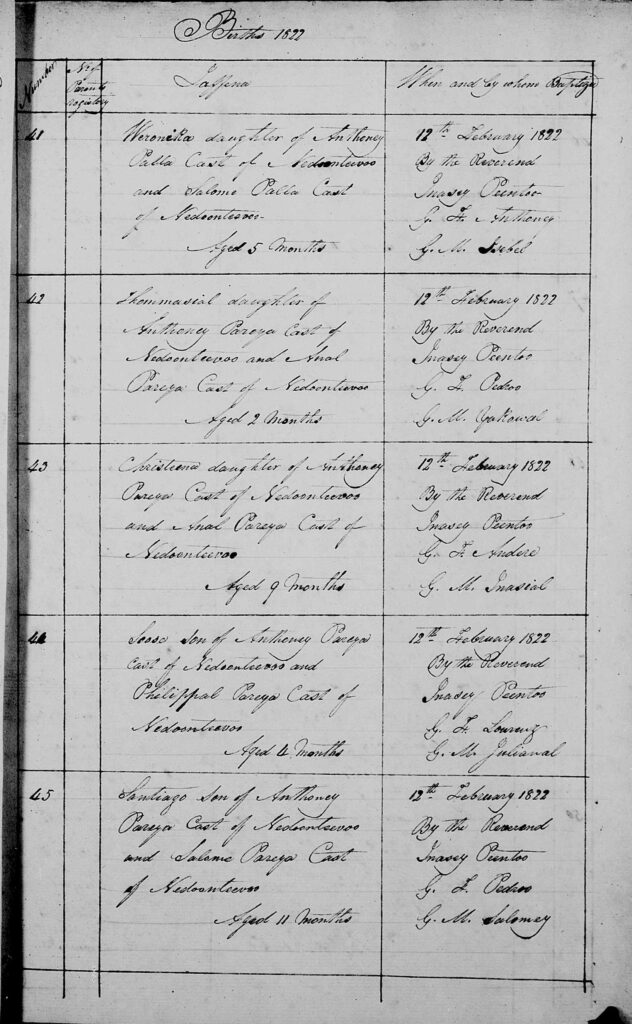 Births 1822
Number
No of
Parents
registory
Jaffena
When and by whom Baptized
41
Weronika daughter of Anthoney
Palla Cast of Nedoonteevoo
and Salome Palla Cast
of Nedoonteevoo
Aged 5 Months
12th February 1822
By the Reverend
Inasey Peentoo
G. F. Anthoney
G. M. Isebel
42
Thommasial daughter of
Anthoney Pareya Cast of
Nedoonteevoo and Anal
Pareya Cast of Nedoonteevoo
Aged 2 Months
12th February 1822
By the Reverend
Inasey Peentoo
G. F. Pedroo
G. M. Yakowal
43
Christeena daughter of Anthoney
Pareya Cast of Nedoonteevoo
and Anal Pareya Cast of
Nedoonteevoo
Aged 9 Months
12th February 1822
By the Reverend
Inasey Peentoo
G. F. Andere
G. M. Inasial
44
Soose son of Anthoney Pareya
Cast of Nedoonteevoo and
Philippal Pareya Cast of
Nedoonteevoo
Aged 4 Months
12th February 1822
By the Reverend
Inasey Peentoo
G. F. Lourenz
G. M. Julianal
45
Santiago son of Anthoney
Pareya Cast of Nedoonteevoo
and Salome Pareya Cast
of Nedoonteevoo
Aged 11 Months
12th February 1822
By the Reverend
Inasey Peentoo
G. F. Pedroo
G. M. Salomey